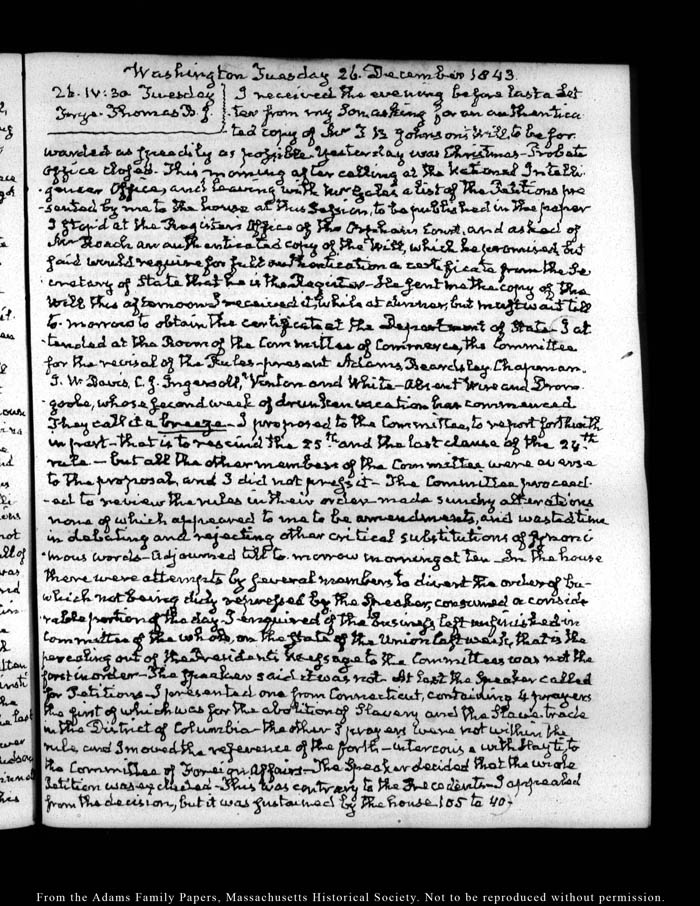 Washington Tuesday 26. December 1843.
26. IV:30 Tuesday
Frye. Thomas B. J.
I received the evening before last a Let
ter from my Son asking for an authentica
ted copy of Mr T B Johnson's Will, to be for
warded as speedily as possible. Yesterday was Christmas - Probate
Office closed. This morning after calling at the National Intelli
gencer Office, and leaving with Mr Gales a list of the Petitions pre
sented by me to the house at this Session, to be published in the paper
I stop'd at the Register's Office of the Orphan's Court, and asked of
Mr Roach an authenticated copy of the Will, which he promised, but
said would require for full authentication a certificate from the Se
cretary of State that he is the Register - He sent me the copy of the
Will this afternoon I received it while at dinner, but must wait till
to-morrow to obtain the certificate at the Department of State - I at
tended at the Room of the Committee of Commerce, the Committee
for the revisal of the Rules - present Adams, Beardsley, Chapman.
J. W. Davis, C. J. Ingersoll, Vinton and White - Absent Wise and Drom
goole, whose second week of drunken vacation has commenced
They call it a breeze - I proposed to the Committee, to report forthwith
in part - that is to rescind the 25th and the last clause of the 24th
rule. - but all the other members of the Committee were averse
to the proposal, and I did not press it - The Committee proceed
ed to review the rules in their order - made sundry alterations
none of which appeared to me to be amendments, and wasted time
in debating and rejecting other critical substitutions of synoni
mous words - adjourned till to-morrow morning at ten - In the house
there were attempts by several members to divert the order of bu-
which not being duly repressed by the Speaker, consumed a conside
rable portion of the day. I enquired if the business left unfinished in
committee of the whole, on the state of the Union last week, that is the
parcelling out of the President's Message to the Committees was not the
first in order - The Speaker said it was not - At last the Speaker called
for Petitions - I presented one from Connecticut, containing 4 prayers
the first of which was for the abolition of Slavery and the Slave trade
in the District of Columbia - the other 3 prayers were not within the
rule, and I moved the reference of the forth - intercourse with Hayti to
the Committee of Foreign Affairs - The Speaker decided that the whole
Petition was excluded - This was contrary to the Precedents - I appealed
from the decision, but it was sustained by the house 105 to 40 -
From the Adams Family Papers, Massachusetts Historical Society. Not to be reproduced without permission.